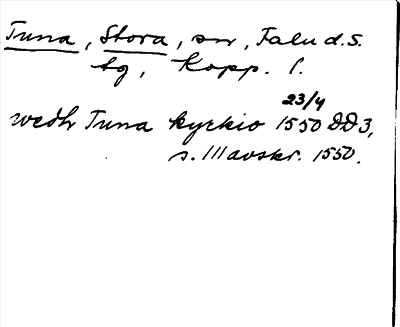 Tuna, Stora, sn, Falu d.s.
tg, Kopp. l.
23/4
wedh Tuna kyrkio 1550 DD3,
s. 111 avskr. 1550.